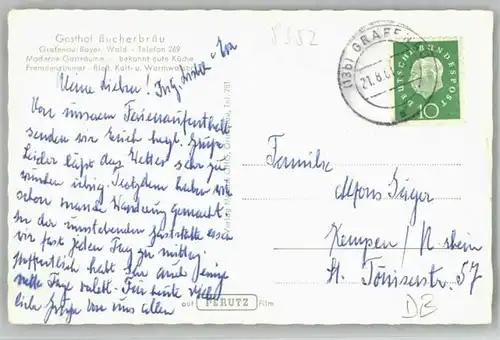 Gasthof Bucherbräu
Grafenau/Bayer. Wald - Telefon 269
Moderne Gasträume - bekannt gute Küche
Fremdenzimmer - fließ. Kalt- u. Warmwasser
8352
(13b) GRAFEN
21.8.6
DEUTSCHE BUNDESPOST
10
Meine Lieben! Fritz,
Von unserem Ferienaufenthalt
senden wir Euch herzl. Grüße
Leider läßt das Wetter sehr zu
wünschen übrig. Trotzdem haben wir
schon manche Wanderung gemacht.
In der umstehenden Gaststätte essen
wir fast jeden Tag zu mittag.
Hoffentlich habt Ihr auch einige
nette Tage verlebt. Für heute viele
liebe Grüße von uns allen
Familie
Alfons Jäger
Kempen / N. rhein
St. Töniserstr. 57
DB
auf PERUTZ Film